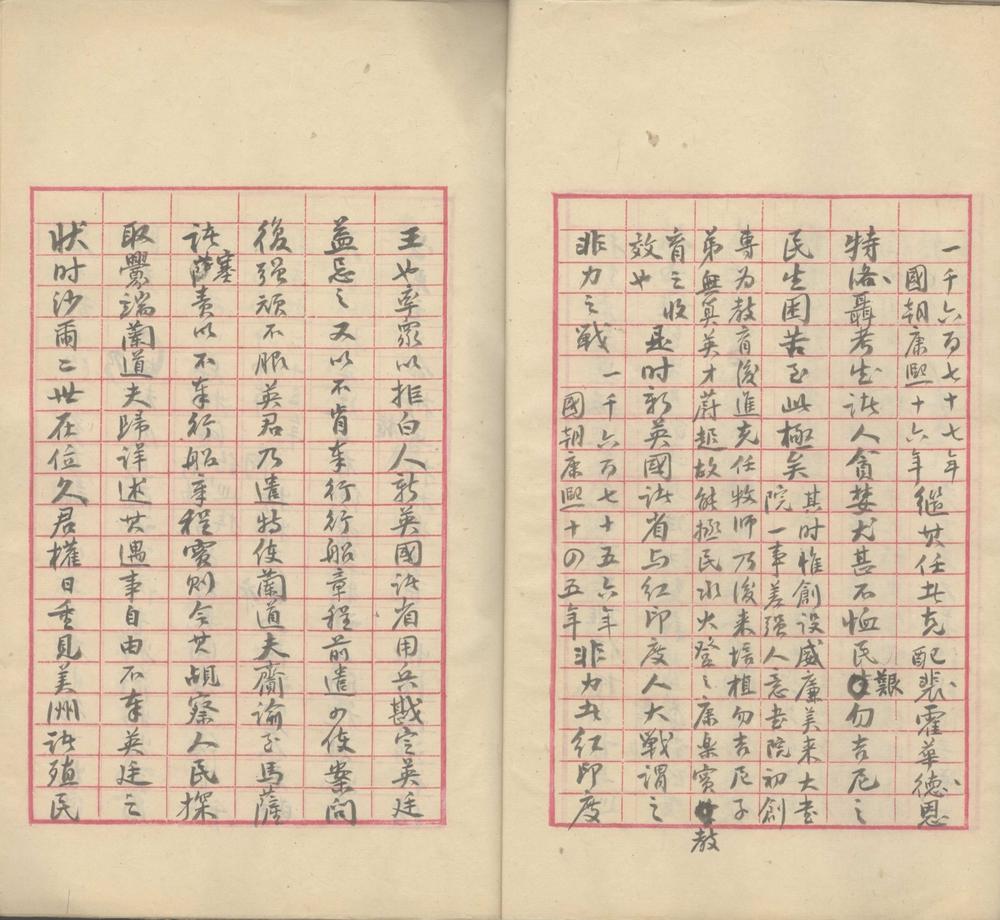 一千六百七十七年
國朝康熙十六年
繼其任者克配裴霍華德恩
特洛聶考生諸人貪婪尤甚不恤民艱勿吉尼之
民生困苦至此極矣
其时惟創設威廉美来大書
院一事差强人意書院初創
專为教育後進充任牧师乃後来培植勿吉尼子
弟無算英才蔚起故能拯民水火登之康樂實教
育之收
效也
是时新英國諸省与紅印度人大戰謂之
非力之戰
一千六百七十五六年
國朝康熙十四五年
非力者紅印度
王也率眾以拒白人新英國諸省用兵戡定英廷
益忌之又以不肯奉行行船章程前遣四使案問
後强頑不服英君乃遣特使蘭道夫齎諭至馬薩
諸塞責以不奉行船章程實則令其覘察人民探
取釁端蘭道夫歸詳述其遇事自由不奉英廷之
狀时沙爾二世在位久君權日重見美洲諸殖民